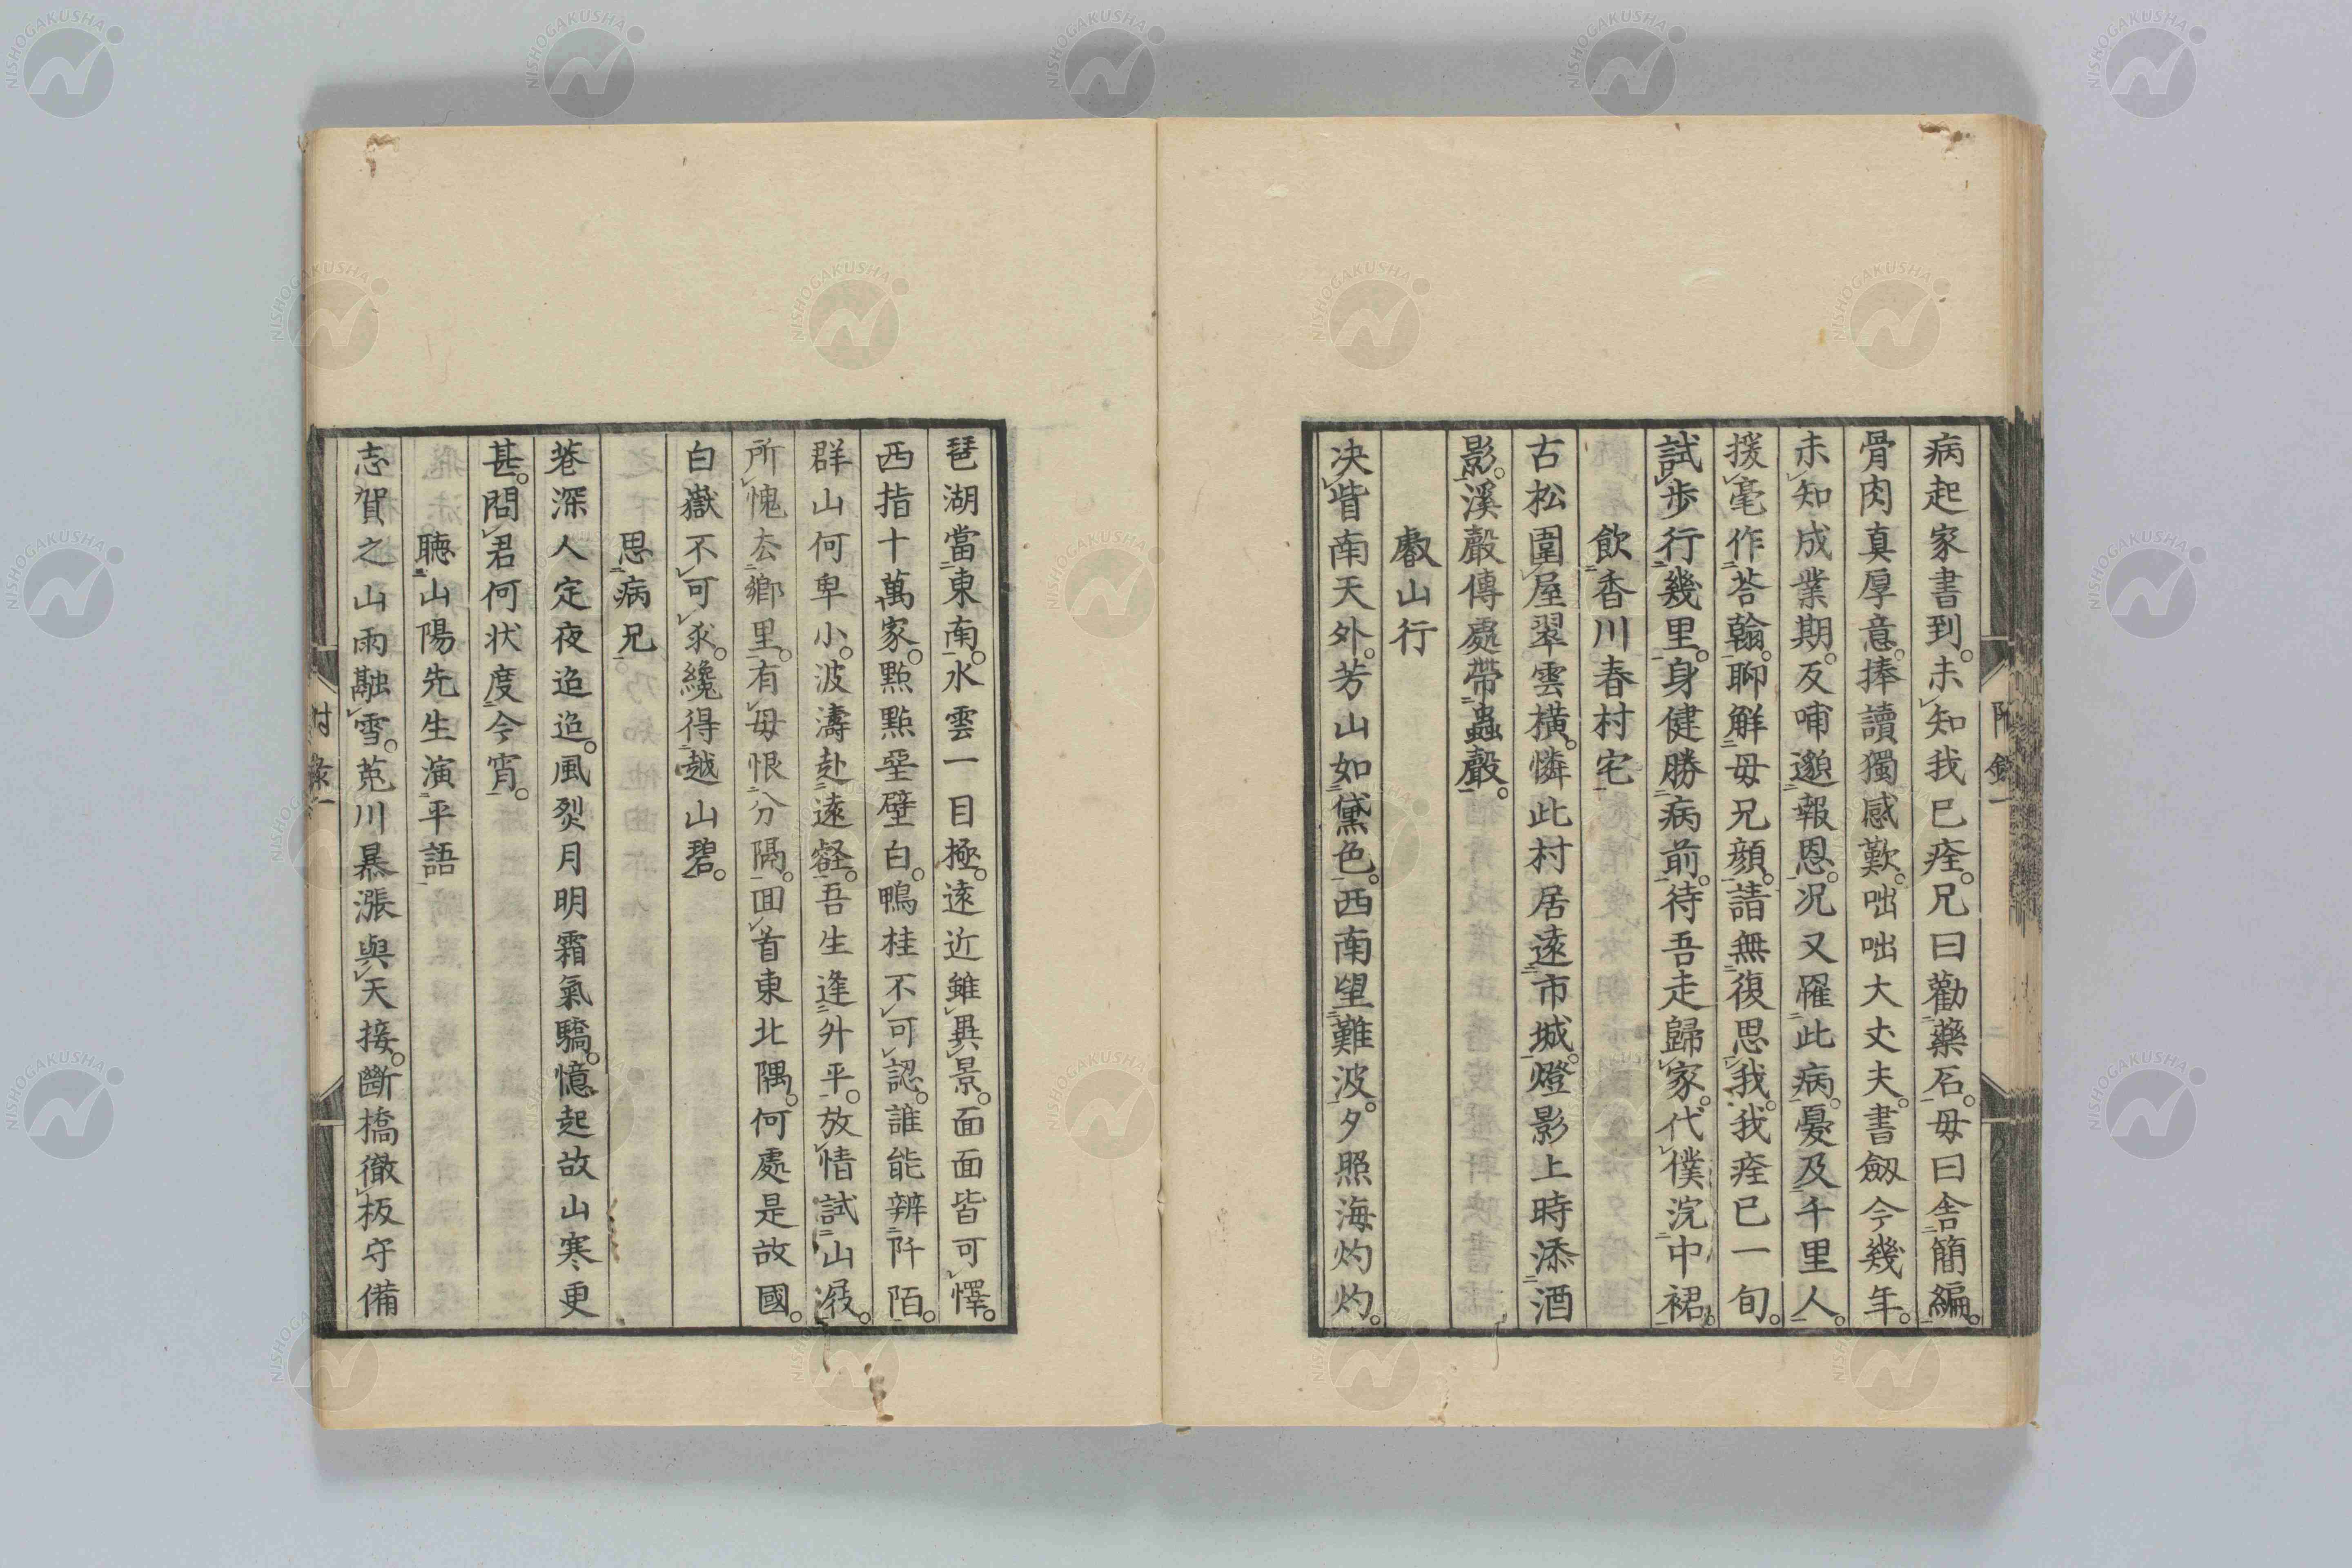 病起家書到。未知我已痊。兄曰勸藥石。毋曰舎簡編。
骨肉真厚意。捧讀獨感歎。咄咄大丈夫。書劔今幾年。
未知成業期。反哺邈報恩。況又罹此病。憂及千里人。
援毫作荅翰。聊解毋兄顔。請無復思我。我痊已一旬。
試歩行幾里。身健勝病前。待吾走歸家。代僕浣中裙。
飲香川春村宅
古松圍屋翠雲横。憐此村居遠市城。燈影上時添酒
影。溪聲傳處帶蟲聲。
叡山行
决眥南天外。芳山如黛色。西南望難波。夕照海灼灼。
琶湖當東南。水雲一目極。遠近雖異景。面面皆可懌。
西指十萬家。點點堊壁白。鴨桂不可認。誰能辨阡陌。
群山何卑小。波濤赴遠壑。吾生逢升平。放情試山屐。
所愧去鄉里。有毋恨分隔。回首東北隅。何處是故國。
白嶽不可求。纔得越山碧。
思病兄
巷深人定夜迢迢。風烈月明霜氣驕。憶起故山寒更
甚。問君何状度今宵。
聽山陽先生演平語
志賀之山雨融雪。菟川暴漲與天接。斷橋徹板守備
附錄一
附錄一
NISHOGAKUSHA